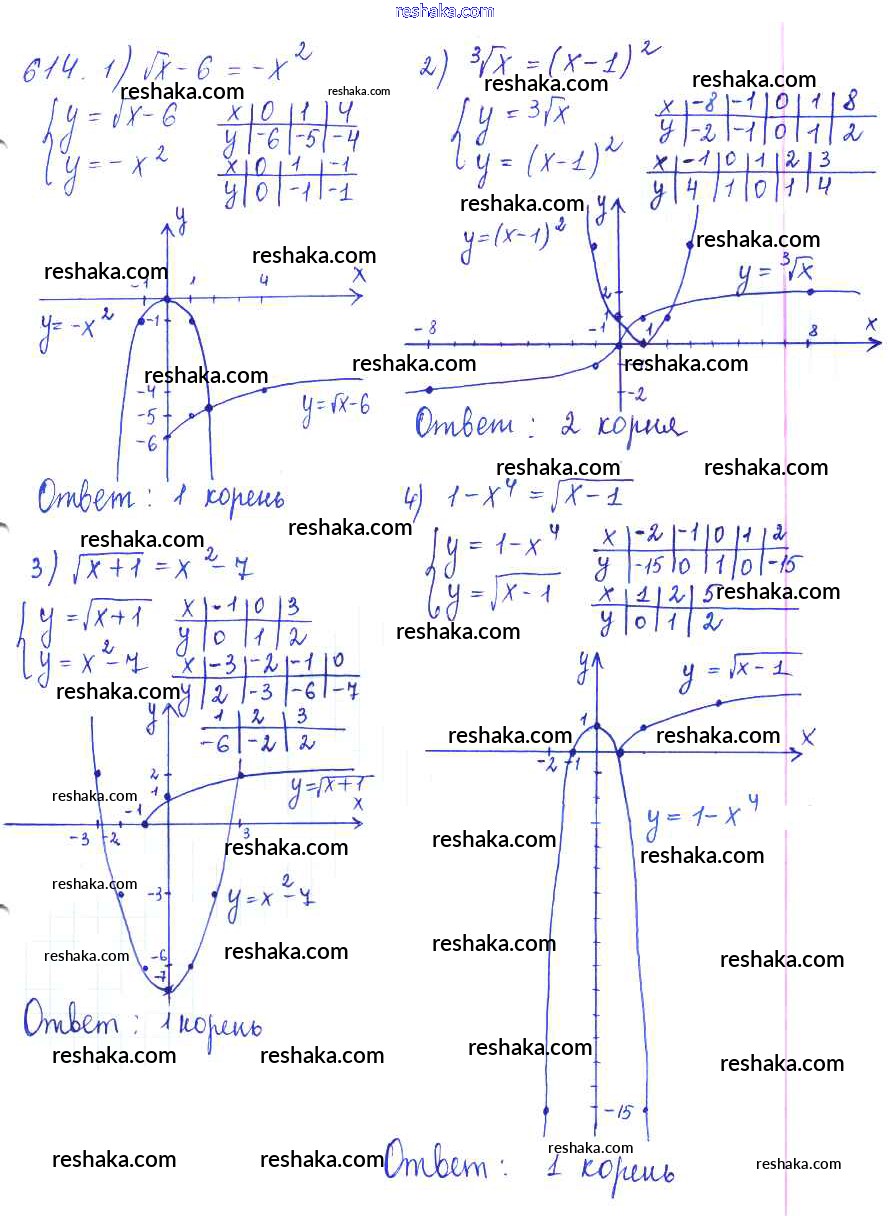 reshaka.com
614. 1) √x - 6 = -x²
{ y = √x - 6
{ y = -x²
x | 0 | 1 | 4
y | -6 | -5 | -4
x | 0 | 1 | -1
y | 0 | -1 | -1
reshaka.com reshaka.com
y
reshaka.com reshaka.com
-1 1 4 x
y = -x²
-1
reshaka.com reshaka.com
-4
-5
-6
y = √x - 6
Ответ: 1 корень
2) ³√x = (x-1)²
reshaka.com
{ y = ³√x
{ y = (x-1)²
x | -8 | -1 | 0 | 1 | 8
y | -2 | -1 | 0 | 1 | 2
reshaka.com
x | -1 | 0 | 1 | 2 | 3
y | 4 | 1 | 0 | 1 | 4
reshaka.com
y
y = (x-1)²
reshaka.com
y = ³√x
2
1
-8 -1 1 8 x
reshaka.com
-2
Ответ: 2 корня
reshaka.com reshaka.com
reshaka.com reshaka.com
3) √x+1 = x² - 7
{ y = √x+1
{ y = x² - 7
x | -1 | 0 | 3
y | 0 | 1 | 2
x | -3 | -2 | -1 | 0
y | 2 | -3 | -6 | -7
1 | 2 | 3
-6 | -2 | 2
reshaka.com
y
2
1
y = √x+1
reshaka.com
-3 -2 -1 3 x
reshaka.com
reshaka.com
-3
y = x² - 7
reshaka.com reshaka.com
-6
-7
Ответ: 1 корень
reshaka.com reshaka.com
4) 1 - x⁴ = √x-1
{ y = 1 - x⁴
{ y = √x-1
x | -2 | -1 | 0 | 1 | 2
y | -15 | 0 | 1 | 0 | -15
reshaka.com
x | 1 | 2 | 5
y | 0 | 1 | 2
reshaka.com
y
y = √x-1
1
reshaka.com reshaka.com
-2 -1 x
y = 1 - x⁴
reshaka.com
reshaka.com
reshaka.com
reshaka.com
reshaka.com
reshaka.com
-15
reshaka.com
Ответ: 1 корень
reshaka.com reshaka.com reshaka.com